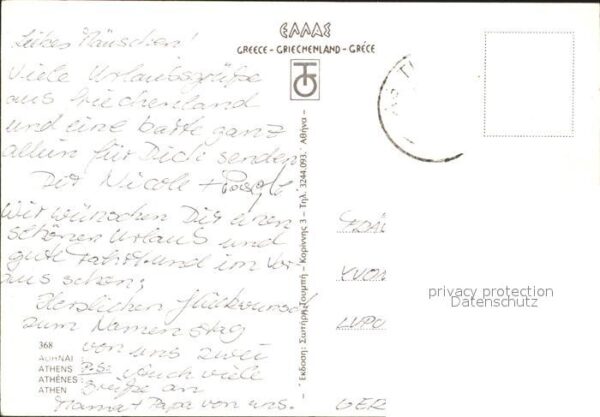 Liebes Mäuschen!
Viele Urlaubsgrüße
aus Griechenland
und eine Karte ganz
allein für Dich senden
Dir Nicole +
Wir wünschen Dir einen
schönen Urlaub und
gute Fahrt und im Vor
aus schon;
Herzlichen Glückwunsch
zum Namenstag
von uns zwei
P.S: Auch viele
Grüße an
Mama + Papa von uns.
368
ΑΘΗΝΑΙ
ATHENS
ATHÈNES
ATHEN
ΕΛΛΑΣ
GREECE - GRIECHENLAND - GRÈCE
Έκδοση: Σωτήρη Τουμπή - Κορίννης 3 - Τηλ. 3244.093. Αθήνα -
YVON
LUPO
GER
privacy protection
Datenschutz